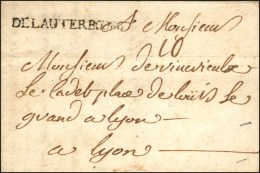 DELAUTERBOURG A Monsieur
10
Monsieur de vincvieulx
Le Cadet place de Louis le
grand a lyon
a lyon